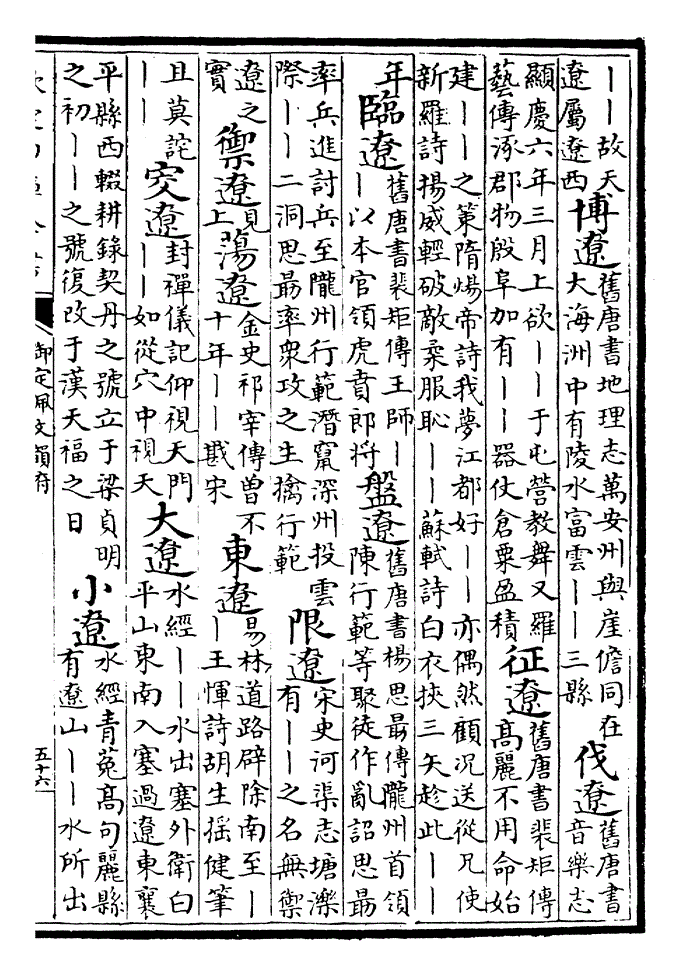 ——故天
遼屬遼西
博遼
舊唐書地理志萬安州與崖儋同在
大海洲中有陵水富雲——三縣
伐遼
舊唐書
音樂志
顯慶六年三月上欲——于屯營教舞又羅
藝傳涿郡物殷阜加有——器仗倉粟盈積
征遼
舊唐書裴矩傳
高麗不用命始
建——之策隋煬帝詩我夢江都好——亦偶然顧况送從兄使
新羅詩揚威輕破敵柔服恥——蘇軾詩白衣挾三矢趁此——
年
臨遼
舊唐書裴矩傳王師—
—以本官領虎賁郎將
盤遼
舊唐書楊思最傳隴州首領
陳行範等聚徒作亂詔思最
率兵進討兵至隴州行範潛竄深州投雲
際——二洞思最率衆攻之生擒行範
限遼
宋史河渠志塘濼
有——之名無禦
遼之
實
禦遼
見
上
蕩遼
金史祁宰傳曾不
十年——戡宋
東遼
易林道路辟除南至—
—王惲詩胡生揺健筆
且莫詫
——
穾遼
封禪儀記仰視天門
——如從穴中視天
大遼
水經——水出塞外衛白
平山東南入塞過遼東襄
平縣西輟耕錄契丹之號立于梁貞明
之初——之號復改于漢天福之日
小遼
水經青菟高句麗縣
有遼山——水所出
御定佩文韻府
五十六